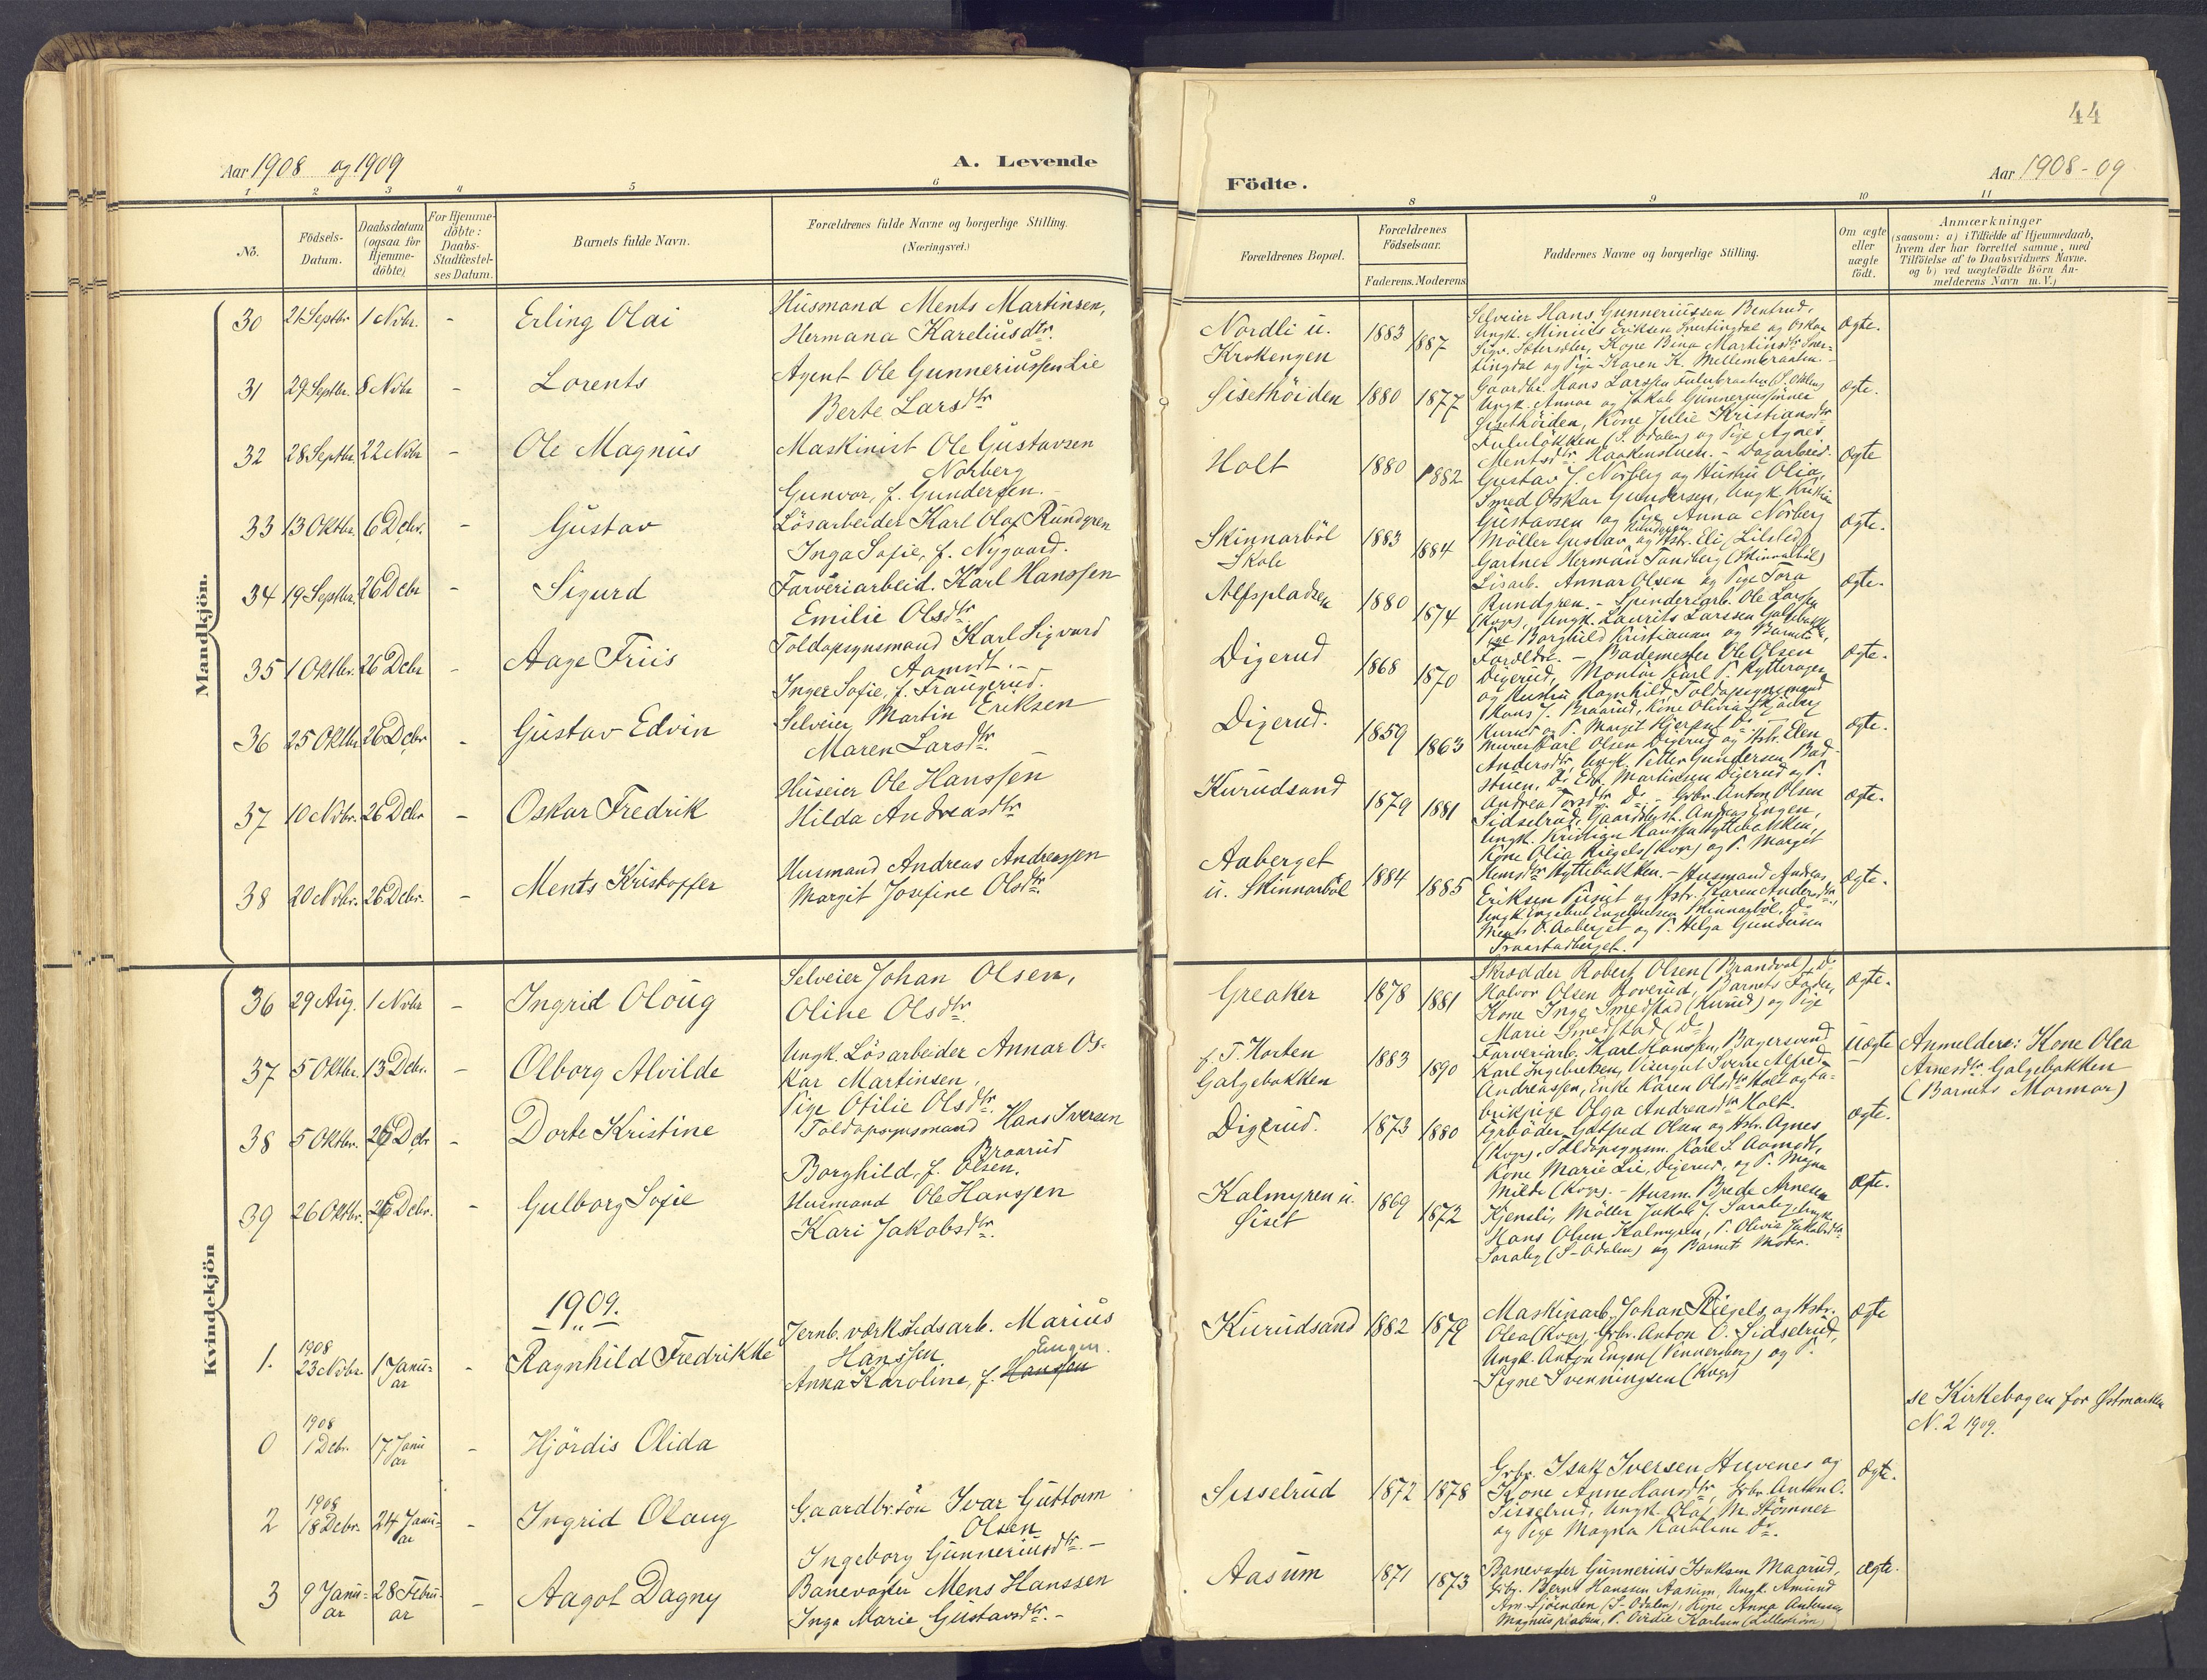 44
Aar 1908 og 1909
A. Levende
Födte.
Aar 1908-09
1 2 3 4 5 6
8 9 10 11
No.
Födsels-Datum.
Daabsdatum (ogsaa for Hjemme-döbte)
For Hjemme-döbte: Daabs-Stadfæstel-ses Datum.
Barnets fulde Navn.
Forældrenes fulde Navne og borgerlige Stilling.
(Næringsvei.)
Forældrenes Bopæl.
Forældrenes Födselsaar.
Faderens. Moderens
Faddernes Navne og borgerlige Stilling.
Om ægte eller uægte födt.
Anmærkninger
(saasom: a) i Tilfælde af Hjemmedaab,
hvem der har forrettet samme, med
Tilföielse af to Daabsvidners Navne.
og b) ved uægtefödte Börn An-
melderens Navn m.V.)
Mandkjön.
30 21 Septbr 1 Novbr. - Erling Olai
Husmand Ments Martinsen,
Hermana Kareliusdtr.
Nordli u.
Krokengen
1883 1887
Selveier Hans Gunneriussen Bentrud,
Ungk. Minius Eriksen Snertingdal og Oskar
ægte.
31 29 Septbr. 8 Novbr - Lorents
Agent Ole Gunneriussen Lie
Berte Larsdtr
Sisethöiden 1880 1877
Gaardbr. Hans Larssen
Sisethöiden, Kone Julie Kristiansdtr
(S. Odalen) og Pige Agnes
ægte.
32 28 Septbr. 22 Novbr - Ole Magnus
Maskinist Ole Gustavsen
Nohberg
Gunvor, f. Gundersen.
Holt 1880 1882
Gustav J. Norberg og Hustru Olia,
Smed Oskar Gundersen, Ungk. Kristian
Gustavsen og Pige Anna Norberg
ægte
33 13 Oktbr. 6 Debr. - Gustav
Lösarbeider Karl Olaf Rundgren
Inga Sofie, f. Nygaard.
Skinnarböl
Skole
1883 1884
Möller Gustav Rundgren og Hstr. Eli (Lilsted)
Gartner Herman Sandberg (Skinnarböl)
Lösarb. Annar Olsen og Pige Tora
Rundgren.
ægte.
34 19 Septbr. 26 Debr - Sigurd
Farveriarbeid. Karl Hanssen
Emilie Olsdtr.
Alfspladsen 1880 1874
Spinderiarb. Ole Larsen
(Kvgr), Ungk. Laurits Larssen
Pige Borghild Kristiansen og Barnets
Forældre.
ægte.
35 1 Oktbr. 26 Debr - Aage Friis
Toldopsynsmand Karl Sigvard
Aamodt. -
Inger Sofie, f. Fraugerud.
Digerud 1868 1870
Bademester Ole Olsen
Digerud, Montör Karl P. Rytterager
og Hustru Ragnhild, Toldopsynsmand
Hans J. Braarud, Kone Olivia
ægte.
36 25 Oktbr 26 Debr - Gustav Edvin
Selveier Martin Eriksen
Maren Larsdtr.
Digerud. 1859 1863
Murer Karl Olsen Digerud og Hstr. Elen
Andersdtr, Ungk. Petter Gundersen Bad-
stuen, Do Edv. Martinsen Digerud og P.
ægte.
37 10 Novbr. 26 Debr - Oskar Fredrik
Huseier Ole Hanssen
Hilda Andreasdtr
Kurudsand 1879 1881
Gbr. Anton Olsen
Sidselrud, Gaardbest. Andreas Engen,
Ungk. Kristian Hanssen Hyttebakken,
Kone Olia Riegels (Kvgr) og P. Margit
Hansdtr Hyttebakken.
ægte.
38 20 Novbr. 26 Debr. - Ments Kristoffer
Husmand Andreas Andreassen
Margit Josefine Olsdtr.
Aaberget
u. Skinnarböl
1884 1885
Husmand Andreas
Eriksen og Hstr. Karen Andersdtr,
Ungk. Engebret Engebretsen Skinnarböl, Do
Ments O. Aaberget og P. Helga Gundersen
Traastadberget.
ægte.
Kvindekjön
36 29 Aug. 1 Novbr - Ingrid Oloug
Selveier Johan Olsen,
Oline Olsdtr.
Greaker 1878 1881
Skrædder Robert Olsen (Brandval), Do
Halvor Olsen Roverud, Barnets Fader,
Kone Inge Smedstad (Kurud) og Pige
Marie Smedstad (Do)
ægte.
37 5 Oktbr. 13 Debr. - Olborg Alvilde
Ungk. Lösarbeider Annar Os-
kar Martinsen,
Pige Otilie Olsdtr.
f. T. Horten
Galgebakken
1883 1890
Farveriarb. Karl Hanssen, Bagersvend
Karl Ingebretsen, Visergut Sverre Alfred
Andreassen, Enke Karen Olsdtr Holt og Fa-
brikpige Olga Andreasdtr Holt.
Uægte
Anmelder: Kone Olea
Arnesdtr. Galgebakken
(Barnets Mormor)
38 5 Oktbr. 26 Debr - Dorte Kristine
Toldopsynsmand Hans Iversen
Braarud
Borghild, f. Olsen.
Digerud. 1873 1880
Fyrböder Gotfred Olsen og Hstr. Agnes
(Kvgr), Toldopsynsm. Karl S. Aamodt,
Kone Marie Lie, Digerud, og P. Magna
Milde (Kvgr).
ægte.
39 26 Oktbr. 26 Debr. - Gulborg Sofie
Husmand Ole Hanssen
Kari Jakobsdtr.
Kalmyren u.
Siset
1869 1872
Husm. Brede Arnesen
Kjensli, Möller Jakob J. Saraby, Ungk.
Hans Olsen Kalmyren, P. Olivia Jakobsdtr
Saraby (S-Odalen) og Barnets Moder.
ægte.
1909.
1. 1908 23 Novbr. 1 Janu-ar - Ragnhild Fredrikke
Jernb. værkstedsarb. Marius
Hanssen
Engen.
Anna Karoline, f. Hanssen
Kurudsand 1882 1879
Maskinarb. Johan Riegels og Hstr.
Olea (Kvgr), Gbr. Anton O. Sidselrud,
Ungk. Anton Engen (Vennersberg) og P.
Signe Svenningsen (Kvgr)
ægte
0 1908 1 Debr. 17 Janu ar - Hjördis Olida
se Kirkebogen for Østmarken
N. 2 1909.
2 1908 18 Debr. 24 Janu-ar - Ingrid Olaug
Gaardbr.sön Ivar Guttorm
Olsen
Ingeborg Gunneriusdtr. -
Sisselrud 1872 1878
Gbr. Isak Iversen Huvenes og
Kone Anne Hansdtr, Gbr. Anton O.
Sisselrud, Ungk. Olaf M. Stömner
og Pige Magna Karoline Do.
ægte.
3 9 Janu-ar 28 Febru-ar - Aagot Dagny
Banevogter Mens Hanssen
Inga Marie Gustavsdtr. -
Aasum 1871 1873
Banevogter Gunnerius Isaksen Maarud,
Gbr. Bernt Hanssen Aasum, Ungk. Amund
(S-Odalen), Kone Anna Andersen
Karlsen (Lilleström)
ægte.